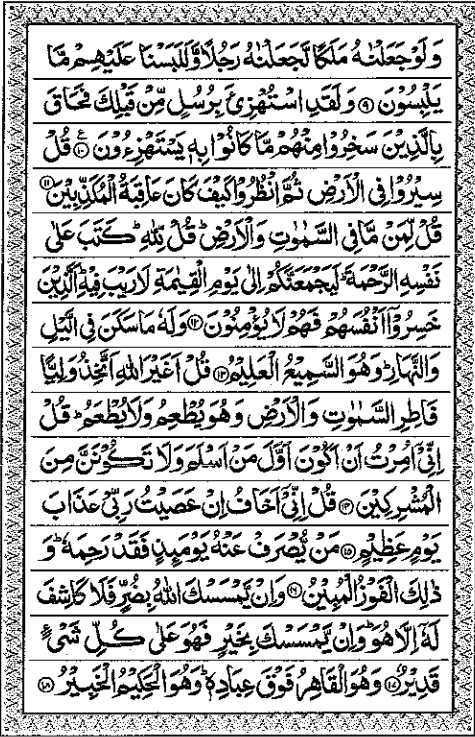 وَلَوْجَعَلْنٰهُ مَلَكًا لَّجَعَلْنٰهُ رَجُلًا وَّلَلَبَسْنَا عَلَيْهِمْ مَّا
يَلْبِسُوْنَ ۹ وَلَقَدِ اسْتُهْزِئَ بِرُسُلٍ مِّنْ قَبْلِكَ فَحَاقَ
بِالَّذِيْنَ سَخِرُوْا مِنْهُمْ مَّا كَانُوْا بِهٖ يَسْتَهْزِءُوْنَ ۱۰ ع قُلْ
سِيْرُوْا فِى الْاَرْضِ ثُمَّ انْظُرُوْا كَيْفَ كَانَ عَاقِبَةُ الْمُكَذِّبِيْنَ ۱۱
قُلْ لِّمَنْ مَّا فِى السَّمٰوٰتِ وَالْاَرْضِ ؕ قُلْ لِّلّٰهِ ؕ كَتَبَ عَلٰى
نَفْسِهِ الرَّحْمَةَ ؕ لَيَجْمَعَنَّكُمْ اِلٰى يَوْمِ الْقِيٰمَةِ لَا رَيْبَ فِيْهِ ؕ اَلَّذِيْنَ
خَسِرُوْۤا اَنْفُسَهُمْ فَهُمْ لَا يُؤْمِنُوْنَ ۱۲ وَلَهٗ مَا سَكَنَ فِى الَّيْلِ
وَالنَّهَارِ ؕ وَهُوَ السَّمِيْعُ الْعَلِيْمُ ۱۳ قُلْ اَغَيْرَ اللّٰهِ اَتَّخِذُ وَلِيًّا
فَاطِرِ السَّمٰوٰتِ وَالْاَرْضِ وَهُوَ يُطْعِمُ وَلَا يُطْعَمُ ؕ قُلْ
اِنِّىْۤ اُمِرْتُ اَنْ اَكُوْنَ اَوَّلَ مَنْ اَسْلَمَ وَلَا تَكُوْنَنَّ مِنَ
الْمُشْرِكِيْنَ ۱۴ قُلْ اِنِّىْۤ اَخَافُ اِنْ عَصَيْتُ رَبِّىْ عَذَابَ
يَوْمٍ عَظِيْمٍ ۱۵ مَنْ يُّصْرَفْ عَنْهُ يَوْمَئِذٍ فَقَدْ رَحِمَهٗ ؕ وَ
ذٰلِكَ الْفَوْزُ الْمُبِيْنُ ۱۶ وَاِنْ يَّمْسَسْكَ اللّٰهُ بِضُرٍّ فَلَا كَاشِفَ
لَهٗۤ اِلَّا هُوَ ؕ وَاِنْ يَّمْسَسْكَ بِخَيْرٍ فَهُوَ عَلٰى كُلِّ شَىْءٍ
قَدِيْرٌ ۱۷ وَهُوَ الْقَاهِرُ فَوْقَ عِبَادِهٖ ؕ وَهُوَ الْحَكِيْمُ الْخَبِيْرُ ۱۸